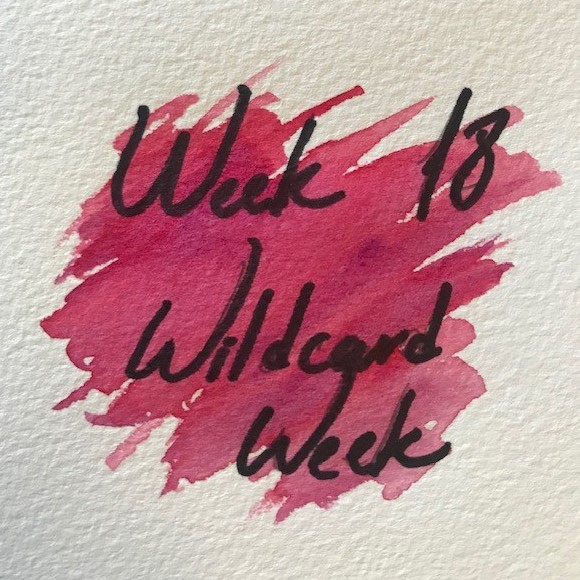 Week 18
Wildcard
Week